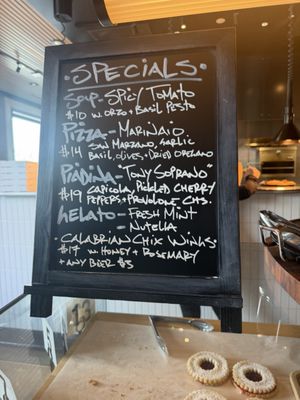 · SPECIALS ·
SOUP - SPICY TOMATO
$10 W. ORZO + BASIL PESTO
PIZZA - MARINAIO
$14 SAN MARZANO, GARLIC
BASIL, OLIVES + DRIED OREGANO
PIADINA - "TONY SOPRANO"
$19 CAPICOLA, PICKLED CHERRY
PEPPERS + PROVOLONE CHS.
GELATO - FRESH MINT
- NUTELLA
· CALABRIAN CHIX WINGS
$17 W. HONEY + ROSEMARY
+ ANY BEER $5